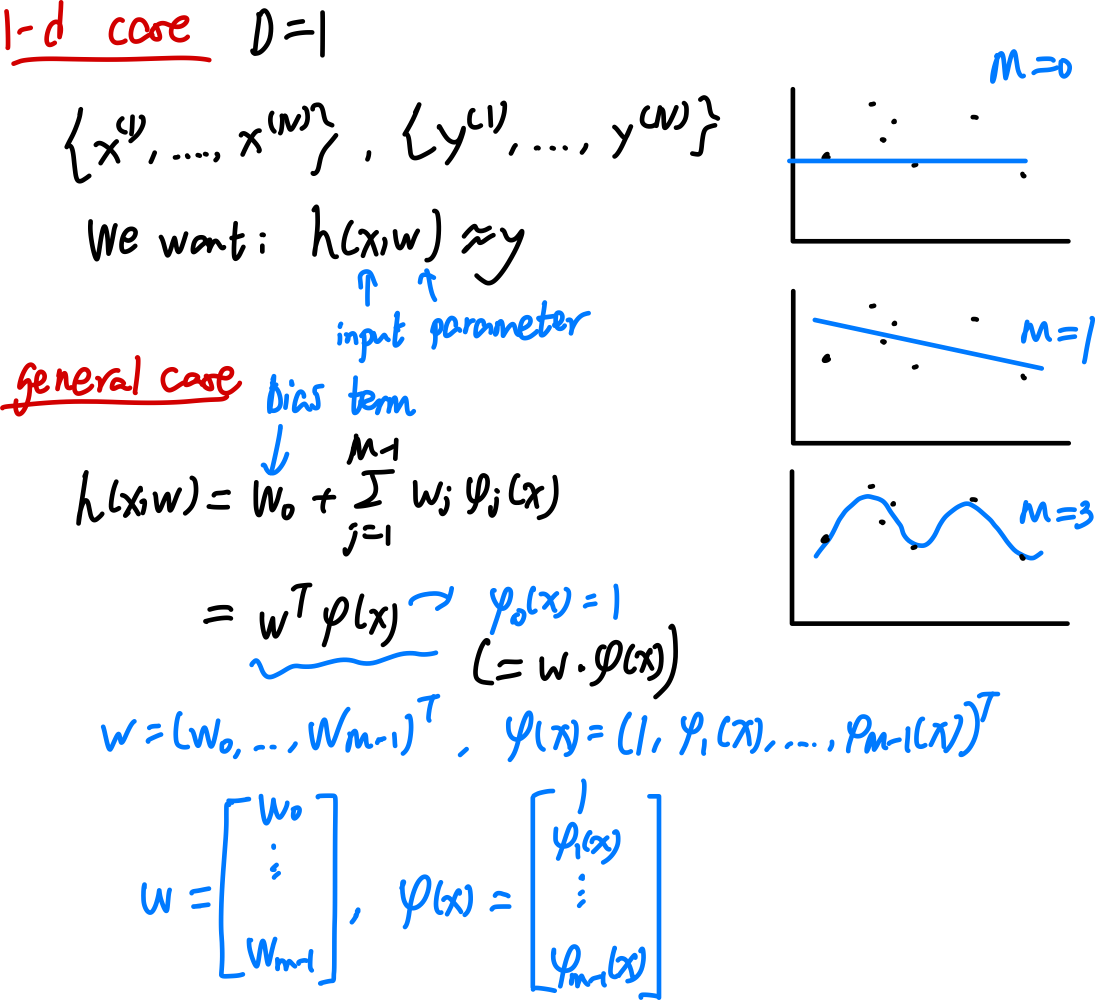 1-d case D=1
{x^(1), ...., x^(N)}, {y^(1), ..., y^(N)}
We want: h(x,w) ≈ y
↑ ↑
input parameter
general case
bias term
↓
h(x,w) = w₀ + Σ_{j=1}^{M-1} w_j φ_j(x)
= w^T φ(x) → φ₀(x) = 1
(= w · φ(x))
w = (w₀, ..., w_{m-1})^T, φ(x) = (1, φ₁(x), ...., φ_{M-1}(x))^T
w = [w₀ ⋮ w_{m-1}], φ(x) = [1 φ₁(x) ⋮ φ_{m-1}(x)]
M=0
M=1
M=3